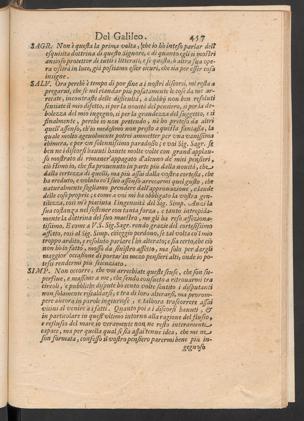 Del Galileo. 457
SAGR. Non è questa la prima volta, che io hò inteso parlar dell'
esquisita dottrina di questo Signore, e di quanto egli si mostri
amoroso protettor di tutti i litterati, e se questa, ò altra sua ope-
ra vscirà in luce, già possiamo esser sicuri, che sia per esser cosa
insigne.
SALV. Ora perche è tempo di por fine a i nostri discorsi, mi resta a
pregarui, che se nel riandar più posatamente le cose da me ar-
recate, incontraste delle difficultà, ò dubbij non ben resoluti
scusiate il mio difetto, sì per la nouità del pensiero, sì per la de-
bolezza del mio ingegno, sì per la grandezza del suggetto, e sì
finalmente, perche io non pretendo, nè hò preteso da altri
quell'assenso, ch'io medesimo non presto a questa fantasia, la
quale molto ageuolmente potrei ammetter per vna vanissima
chimera, e per vn solennissimo paradosso; e voi Sig. Sagr. se
ben ne i discorsi hauuti hauete molte volte con grand'applau-
so mostrato di rimaner'appagato d'alcuno de miei pensieri,
ciò stimo io, che sia prouenuto in parte più dalla nouità, che
dalla certezza di quelli, ma più assai dalla vostra cortesia, che
hà creduto, e voluto co'l suo assenso arrecarmi quel gusto, che
naturalmente sogliamo prendere dall'approuazione, e laude
delle cose proprie; e come a voi mi hà obbligato la vostra gen-
tilezza, così m'è piaciuta l'ingenuità del Sig. Simp. Anzi la
sua costanza nel sostener con tanta forza, e tanto intrepida-
mente la dottrina del suo maestro, me gli hà reso affezionа-
tissimo, E come a V.S. Sig. Sagr. rendo grazie del cortesissimo
affetto, così al Sig. Simp. chieggio perdono, se tal volta co'l mio
troppo ardito, e resoluto parlare l'hò alterato; e sia certo, che ciò
non hò io fatto, mosso da sinistro affetto, ma solo per dargli
maggior'occasione di portar'in mezo pensieri alti, onde io po-
tessi rendermi più scienziato.
SIMP. Non occorre, che voi arrechiate queste scuse, che son su-
perflue, e massime a me, che sendo consueto a ritrouarmi tra
circoli, e publiche dispute hò cento volte sentito i disputanti
non solamente riscaldarsi, e tra di loro alterarsi, ma prorom-
pere ancora in parole ingiuriose, e talhora trascorrere assai
vicini al venire a i fatti. Quanto poi a i discorsi hauuti, &
in particolare in quest'vltimo intorno alla ragione del flusso,
e reflusso del mare io veramente non ne resto interamente
capace, ma per quella qual si sia assai tenue idea, che me ne
son formata, confesso il vostro pensiero parermi bene più in-
gegnoso